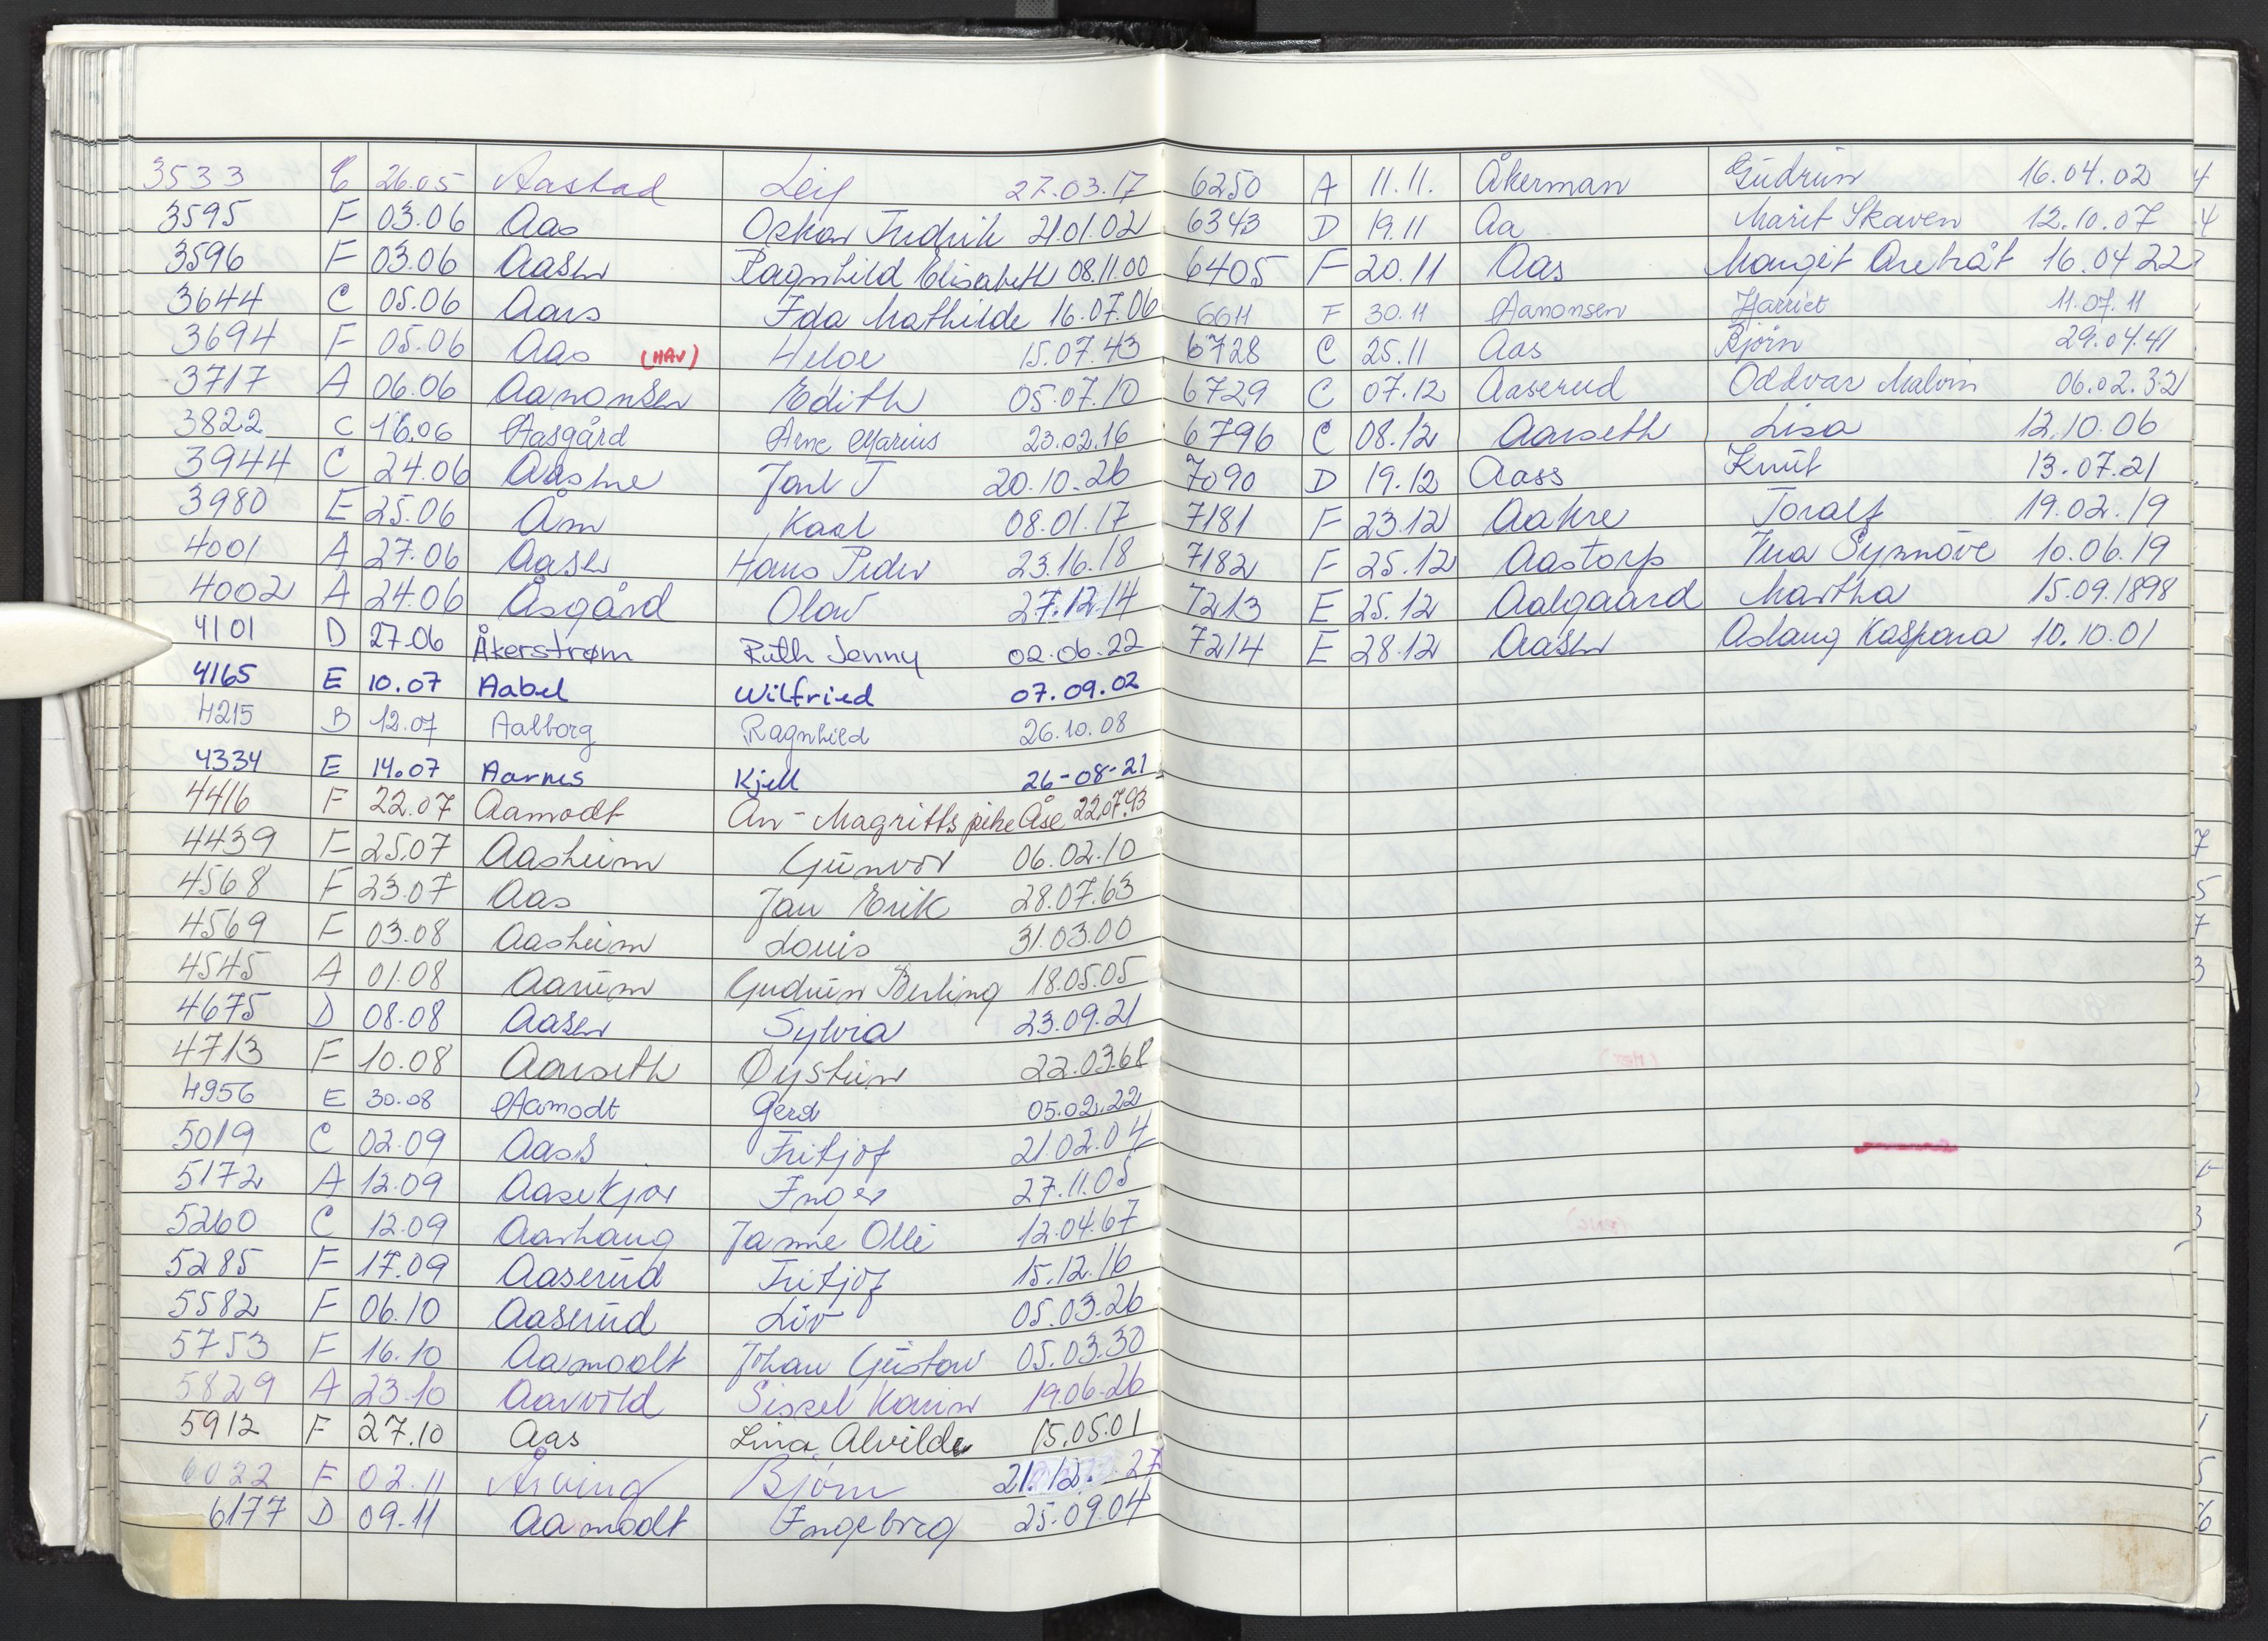 3533 C 26.05 Aastad Leif 27.03.17
3595 F 03.06 Aas Oskar Fredrik 21.01.02
3596 F 03.06 Aasen Ragnhild Elisabeth 08.11.00
3644 C 05.06 Aars Ida Mathilde 16.07.06
3694 F 05.06 Aas (HAV) Helge 15.07.43
3717 A 06.06 Aanonsen Edith 05.07.10
3822 C 16.06 Aasgård Arne Marius 23.02.16
3944 C 24.06 Aasne J 20.10.26
3980 E 25.06 Åm Kaal 08.01.17
4001 A 27.06 Aasen Hans Peder 23.16.18
4002 A 24.06 Åsgård Olav 27.12.14
4101 D 27.06 Åkerstrøm Ruth Jenny 02.06.22
4165 E 10.07 Aabel Wilfried 07.09.02
4215 B 12.07 Aalborg Ragnhild 26.10.08
4334 E 14.07 Aarnes Kjell 26-08-21
4416 F 22.07 Aamodt An-Magritts pike Åse 22.07.93
4439 F 25.07 Aasheim Gunvor 06.02.10
4568 F 23.07 Aas Jan Erik 28.07.63
4569 F 03.08 Aasheim Louis 31.03.00
4545 A 01.08 Aarum Gudrun Berling 18.05.05
4675 D 08.08 Aasen Sylvia 23.09.21
4713 F 10.08 Aarseth Øystein 22.03.68
4956 E 30.08 Aamodt Gerd 05.02.22
5019 C 02.09 Aass Fritjof 21.02.04
5172 A 12.09 Aasekjær Inger 27.11.05
5260 C 12.09 Aarhaug Janne Olli 12.04.67
5285 F 17.09 Aaserud Fritjof 15.12.16
5582 F 06.10 Aaserud Liv 05.03.26
5753 F 16.10 Aamodt Johan Gustav 05.03.30
5829 A 23.10 Aarvold Sissel Karin 19.06.26
5912 F 27.10 Aas Lina Alvilde 15.05.01
6022 F 02.11 Årving Bjørn 21.12.27
6177 D 09.11 Aamodt Ingeborg 25.09.04
6250 A 11.11. Åkerman Gudrun 16.04.02
6343 D 19.11 Aa Marit Skaven 12.10.07
6405 F 20.11 Aas Margit 16.04 22
6611 F 30.11 Aanonsen Harriet 11.07.11
6728 C 25.11 Aas Bjørn 29.04.41
6729 C 07.12 Aaserud Oddvar Malvin 06.02.32
6796 C 08.12 Aarseth Lisa 12.10.06
7090 D 19.12 Aass Knut 13.07.21
7181 F 23.12 Aakre Toralf 19.02.19
7182 F 25.12 Aastorp Synnøve 10.06.19
7213 E 25.12 Aalgaard Martha 15.09.1898
7214 E 28.12 Aasen Aslaug Kaspara 10.10.01